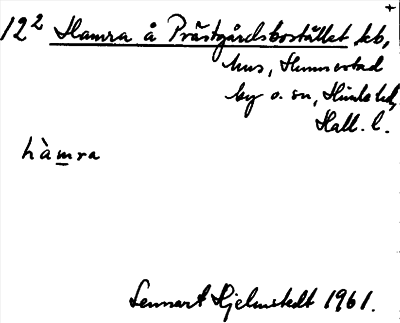 12² Hamra å Prästgårdsbostället kb,
hus, Hunnestad
by o. sn, Himle hd,
Hall. l.
hàmra
Lennart Hjelmstedt 1961.